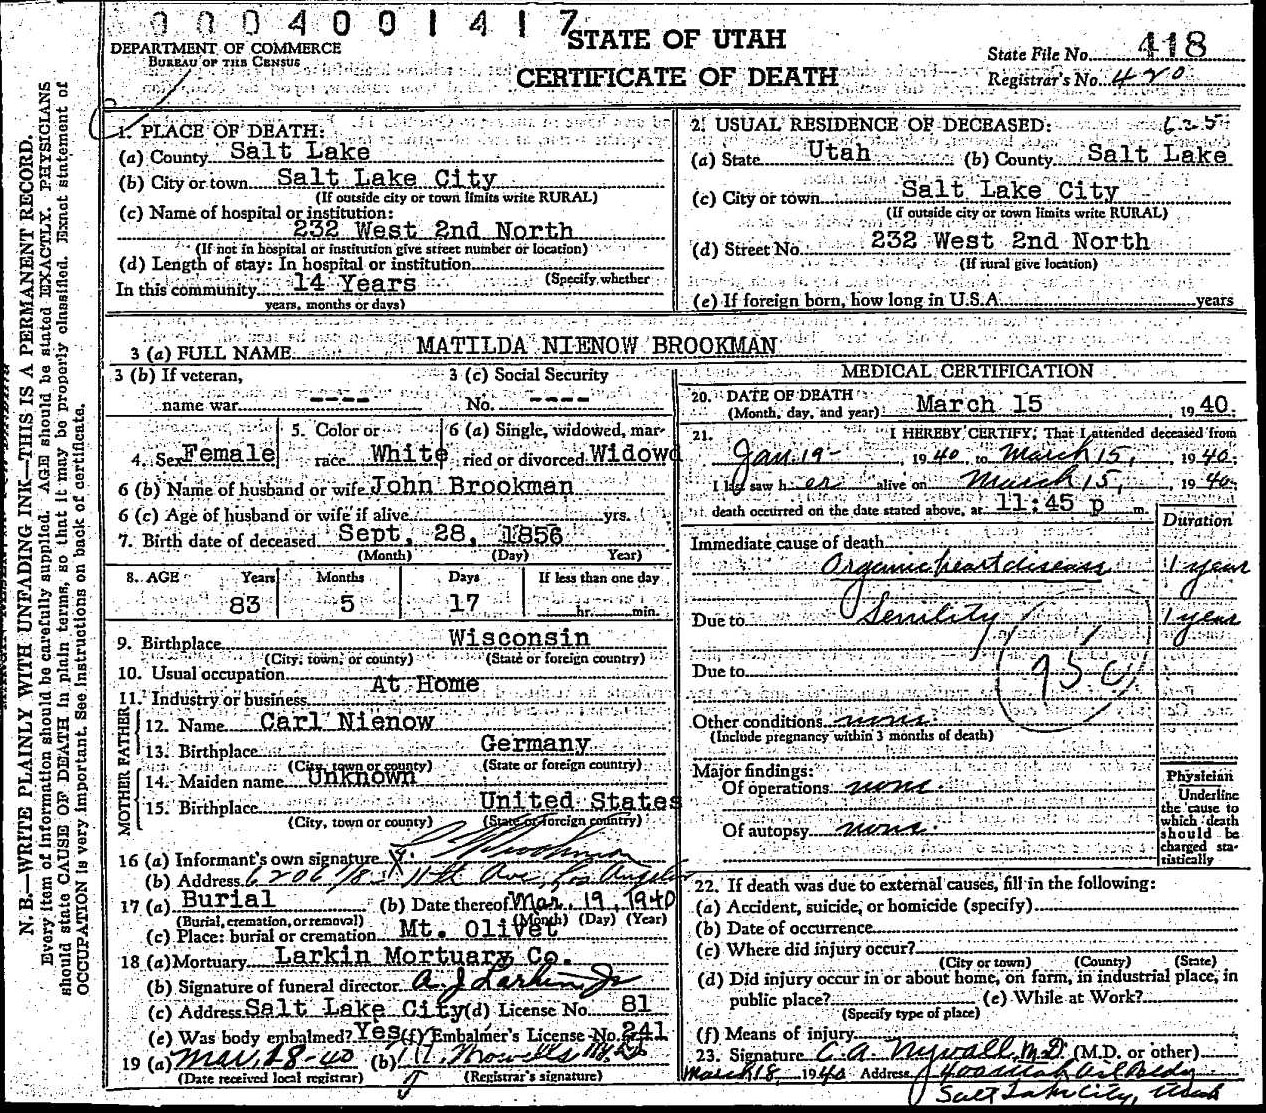 0004001417
STATE OF UTAH
CERTIFICATE OF DEATH
DEPARTMENT OF COMMERCE
BUREAU OF THE CENSUS
State File No. 418
Registrar's No. 420
N. B.—WRITE PLAINLY WITH UNFADING INK—THIS IS A PERMANENT RECORD.
Every item of information should be carefully supplied. AGE should be stated EXACTLY. PHYSICIANS
should state CAUSE OF DEATH in plain terms, so that it may be properly classified. Exact statement of
OCCUPATION is very important. See instructions on back of certificate.
1. PLACE OF DEATH:
(a) County Salt Lake
(b) City or town Salt Lake City
(If outside city or town limits write RURAL)
(c) Name of hospital or institution:
232 West 2nd North
(If not in hospital or institution give street number or location)
(d) Length of stay: In hospital or institution
(Specify whether
In this community 14 Years
years, months or days)
2. USUAL RESIDENCE OF DECEASED: 625
(a) State Utah (b) County Salt Lake
(c) City or town Salt Lake City
(If outside city or town limits write RURAL)
(d) Street No. 232 West 2nd North
(If rural give location)
(e) If foreign born, how long in U.S.A. years
3 (a) FULL NAME MATILDA NIENOW BROOKMAN
3 (b) If veteran, name war ----
3 (c) Social Security No. ----
4. Sex Female
5. Color or race White
6 (a) Single, widowed, married or divorced Widowd
6 (b) Name of husband or wife John Brookman
6 (c) Age of husband or wife if alive yrs.
7. Birth date of deceased Sept. 28, 1856
(Month) (Day) Year)
8. AGE Years Months Days If less than one day
83 5 17 hr. min.
9. Birthplace Wisconsin
(City, town, or county) (State or foreign country)
10. Usual occupation At Home
11. Industry or business
FATHER
12. Name Carl Nienow
13. Birthplace Germany
(City, town or county) (State or foreign country)
MOTHER
14. Maiden name Unknown
15. Birthplace United States
(City, town or county) (State or foreign country)
16 (a) Informant's own signature Brookman
(b) Address 6206 1/8 11th Ave, Los Angeles
17 (a) Burial (b) Date thereof Mar. 19, 1940
(Burial, cremation, or removal) (Month) (Day) (Year)
(c) Place: burial or cremation Mt. Olivet
18 (a) Mortuary Larkin Mortuary Co.
(b) Signature of funeral director A. J Larkin Jr
(c) Address Salt Lake City (d) License No. 81
(e) Was body embalmed? Yes (f) Embalmer's License No. 241
19 (a) Mar. 18-40 (b)
(Date received local registrar) (Registrar's signature)
MEDICAL CERTIFICATION
20. DATE OF DEATH
(Month, day, and year) March 15, 1940.
21. I HEREBY CERTIFY, That I attended deceased from
Jan. 19- 1940 to March 15, 1940.
I last saw her alive on March 15, 1940.
death occurred on the date stated above, at 11:45 p m.
Duration
Immediate cause of death
Organic heart disease 1 year
Due to Senility 1 year
Due to
Other conditions none.
(Include pregnancy within 3 months of death)
Major findings:
Of operations none.
Of autopsy none.
Physician
Underline
the cause to
which death
should be
charged sta-
tistically
22. If death was due to external causes, fill in the following:
(a) Accident, suicide, or homicide (specify)
(b) Date of occurrence
(c) Where did injury occur?
(City or town) (County) (State)
(d) Did injury occur in or about home, on farm, in industrial place, in
public place? (e) While at Work?
(Specify type of place)
(f) Means of injury
23. Signature C. A. Nywall, M.D. (M.D. or other)
March 18, 1940 Address
Salt Lake City, Utah